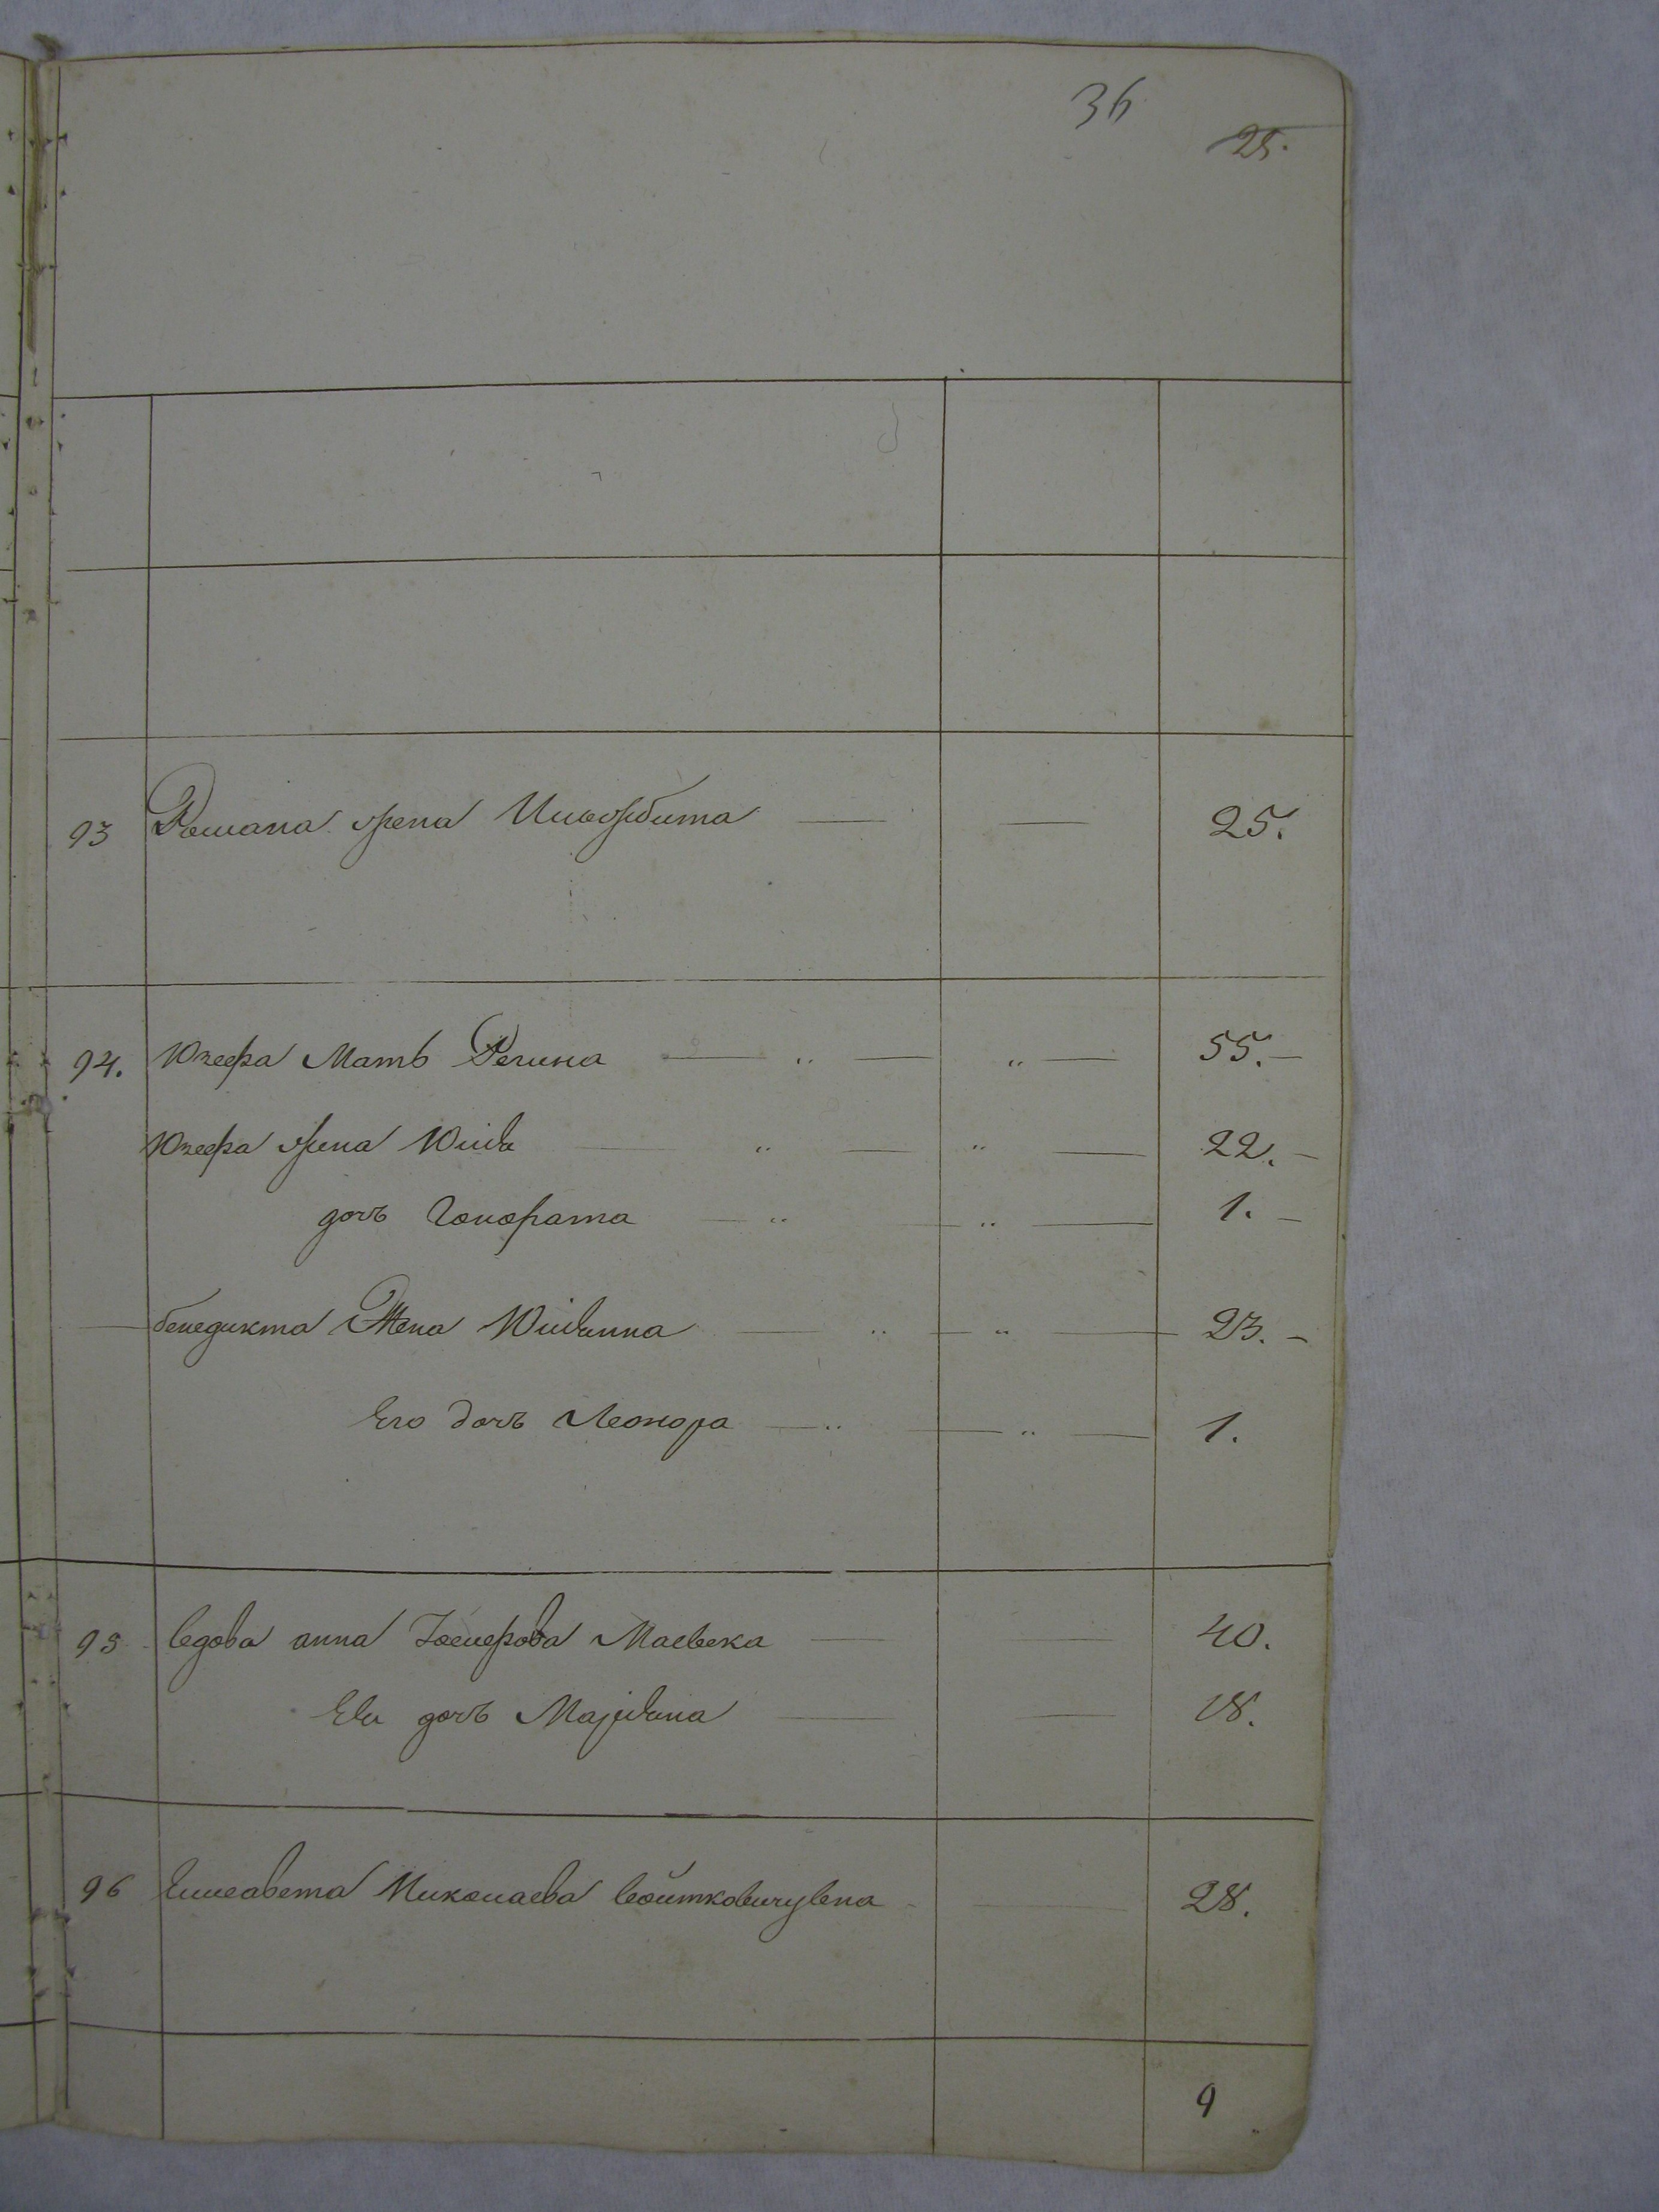 36
25.
93 Романа жена Ильжбита — — 25.
94. Юзефа Мать Регина — „ — „ — 55. —
Юзефа жена Юлiя — „ — „ — 22. —
дочь Гонората — „ — „ — 1. —
бенедикта Жена Юлiанна — „ — „ — 23. —
Его дочь Леонора — „ — „ — 1.
95 вдова анна Маевска — — 40.
Ея дочь Марiяна — — 18.
96 Елисавета Миколаева войтковичувна — 28.
9